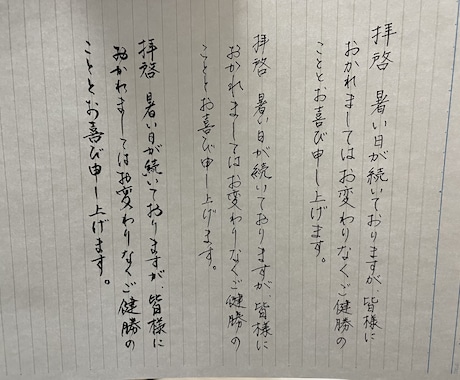 拝啓 暑い日が続いておりますが、皆様に
おかれましてはお変わりなくご健勝の
こととお喜び申し上げます。
拝啓 暑い日が続いておりますが、皆様に
おかれましてはお変わりなくご健勝の
こととお喜び申し上げます。
拝啓 暑い日が続いておりますが、皆様に
おかれましてはお変わりなくご健勝の
こととお喜び申し上げます。